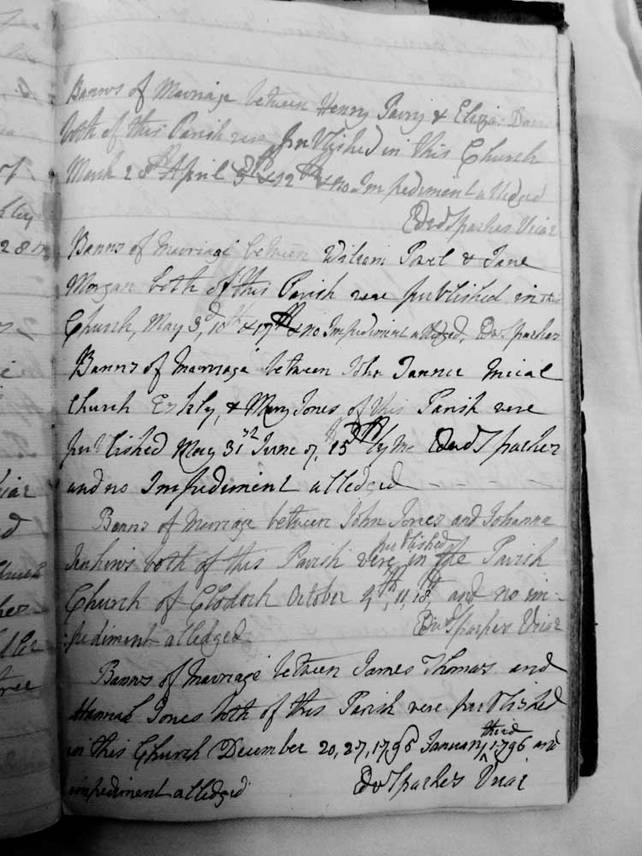 Banns of Marriage between Henry Parry & Eliza
both of this Parish were published in this Church
March 28th April 5th & 12th & no Impediment alledged
Edwd Sparkes Vicar
Banns of Marriage between William Parl & Jane
Morgan both of this Parish were published in this
Church, May 3d, 10th & 17th & no Impediment alledged, Edwd Sparkes
Banns of Marriage between John
Church & Mary Jones of this Parish were
published May 31st June 7, 15th by me Edwd Sparkes
and no Impediment alledged
Banns of Marriage between John Jones and Johanna
Jenkins both of this Parish were published in the Parish
Church of Clodock October 4th, 11, 18th and no im-
pediment alledged Edwd Sparkes Vicar
Banns of Marriage between James Thomas and
Hannah Jones both of this Parish were published
in this Church December 20, 27, 1795 January third 1796 and
impediment alledged Edwd Sparkes Vicar